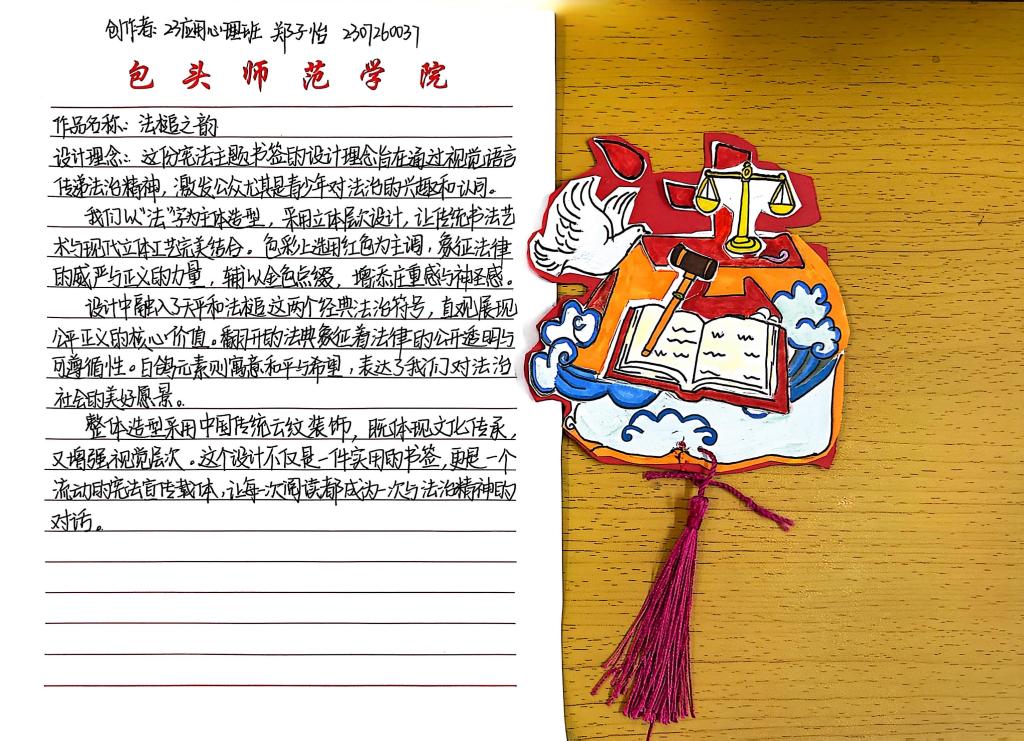 创作者：23应用心理班 郑子怡 2307260037
包头师范学院
作品名称：法槌之韵
设计理念：这份宪法主题书签的设计理念旨在通过视觉语言
传递法治精神，激发公众尤其是青少年对法治的兴趣和认同。
我们以“法”字为主体造型，采用立体层次设计，让传统书法艺
术与现代立体工艺完美结合。色彩上选用红色为主调，象征法律
的威严与正义的力量，辅以金色点缀，增添庄重感与神圣感。
设计中融入了天平和法槌这两个经典法治符号，直观展现
公平正义的核心价值。翻开的法典象征着法律的公开透明与
可遵循性。白鸽元素则寓意和平与希望，表达了我们对法治
社会的美好愿景。
整体造型采用中国传统云纹装饰，既体现文化传承，
又增强视觉层次。这个设计不仅是一件实用的书签，更是一个
流动的宪法宣传载体，让每一次阅读都成为一次与法治精神的
对话。